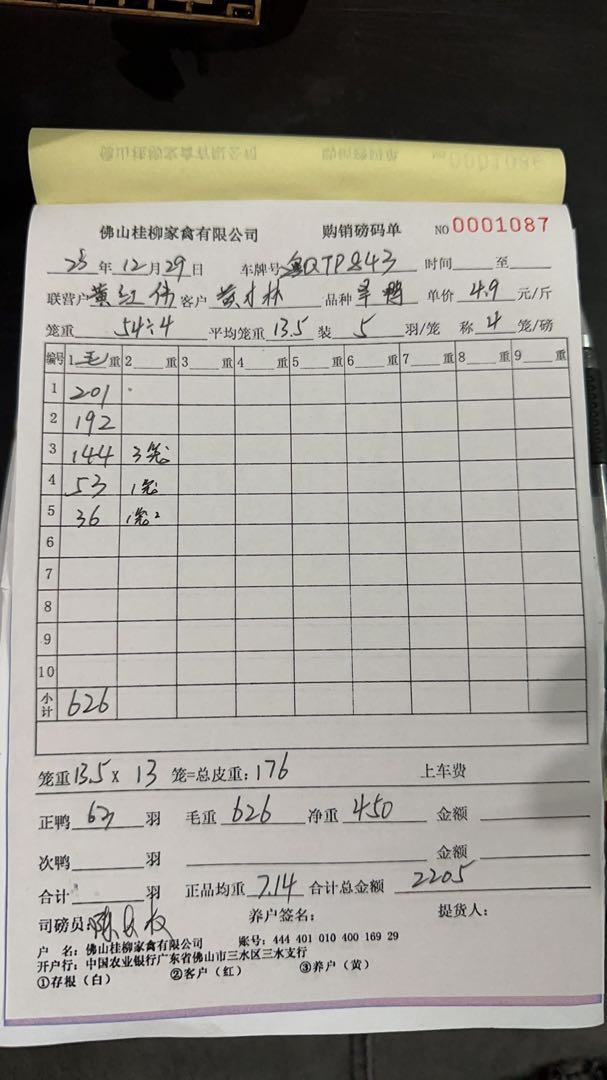 佛山桂柳家禽有限公司 购销磅码单 NO 0001087
25年12月29日 车牌号 粤QTP843 时间 至
联营户 黄红伟 客户 黄木林 品种 单价 4.9 元/斤
笼重 54÷4 平均笼重 13.5 装 5 羽/笼 称 4 笼/磅
编号 1 毛 重 2 重 3 重 4 重 5 重 6 重 7 重 8 重 9 重
1 201
2 192
3 144 3笼
4 53 1笼
5 36 1笼2
6
7
8
9
10
小计 626
笼重 13.5 x 13 笼=总皮重: 176 上车费
正鸭 63 羽 毛重 626 净重 450 金额
次鸭 羽 金额
合计 羽 正品均重 7.14 合计总金额 2205
司磅员: 养户签名: 提货人:
户 名: 佛山桂柳家禽有限公司 账号: 444 401 010 400 169 29
开户行: 中国农业银行广东省佛山市三水区三水支行
①存根(白) ②客户(红) ③养户(黄)